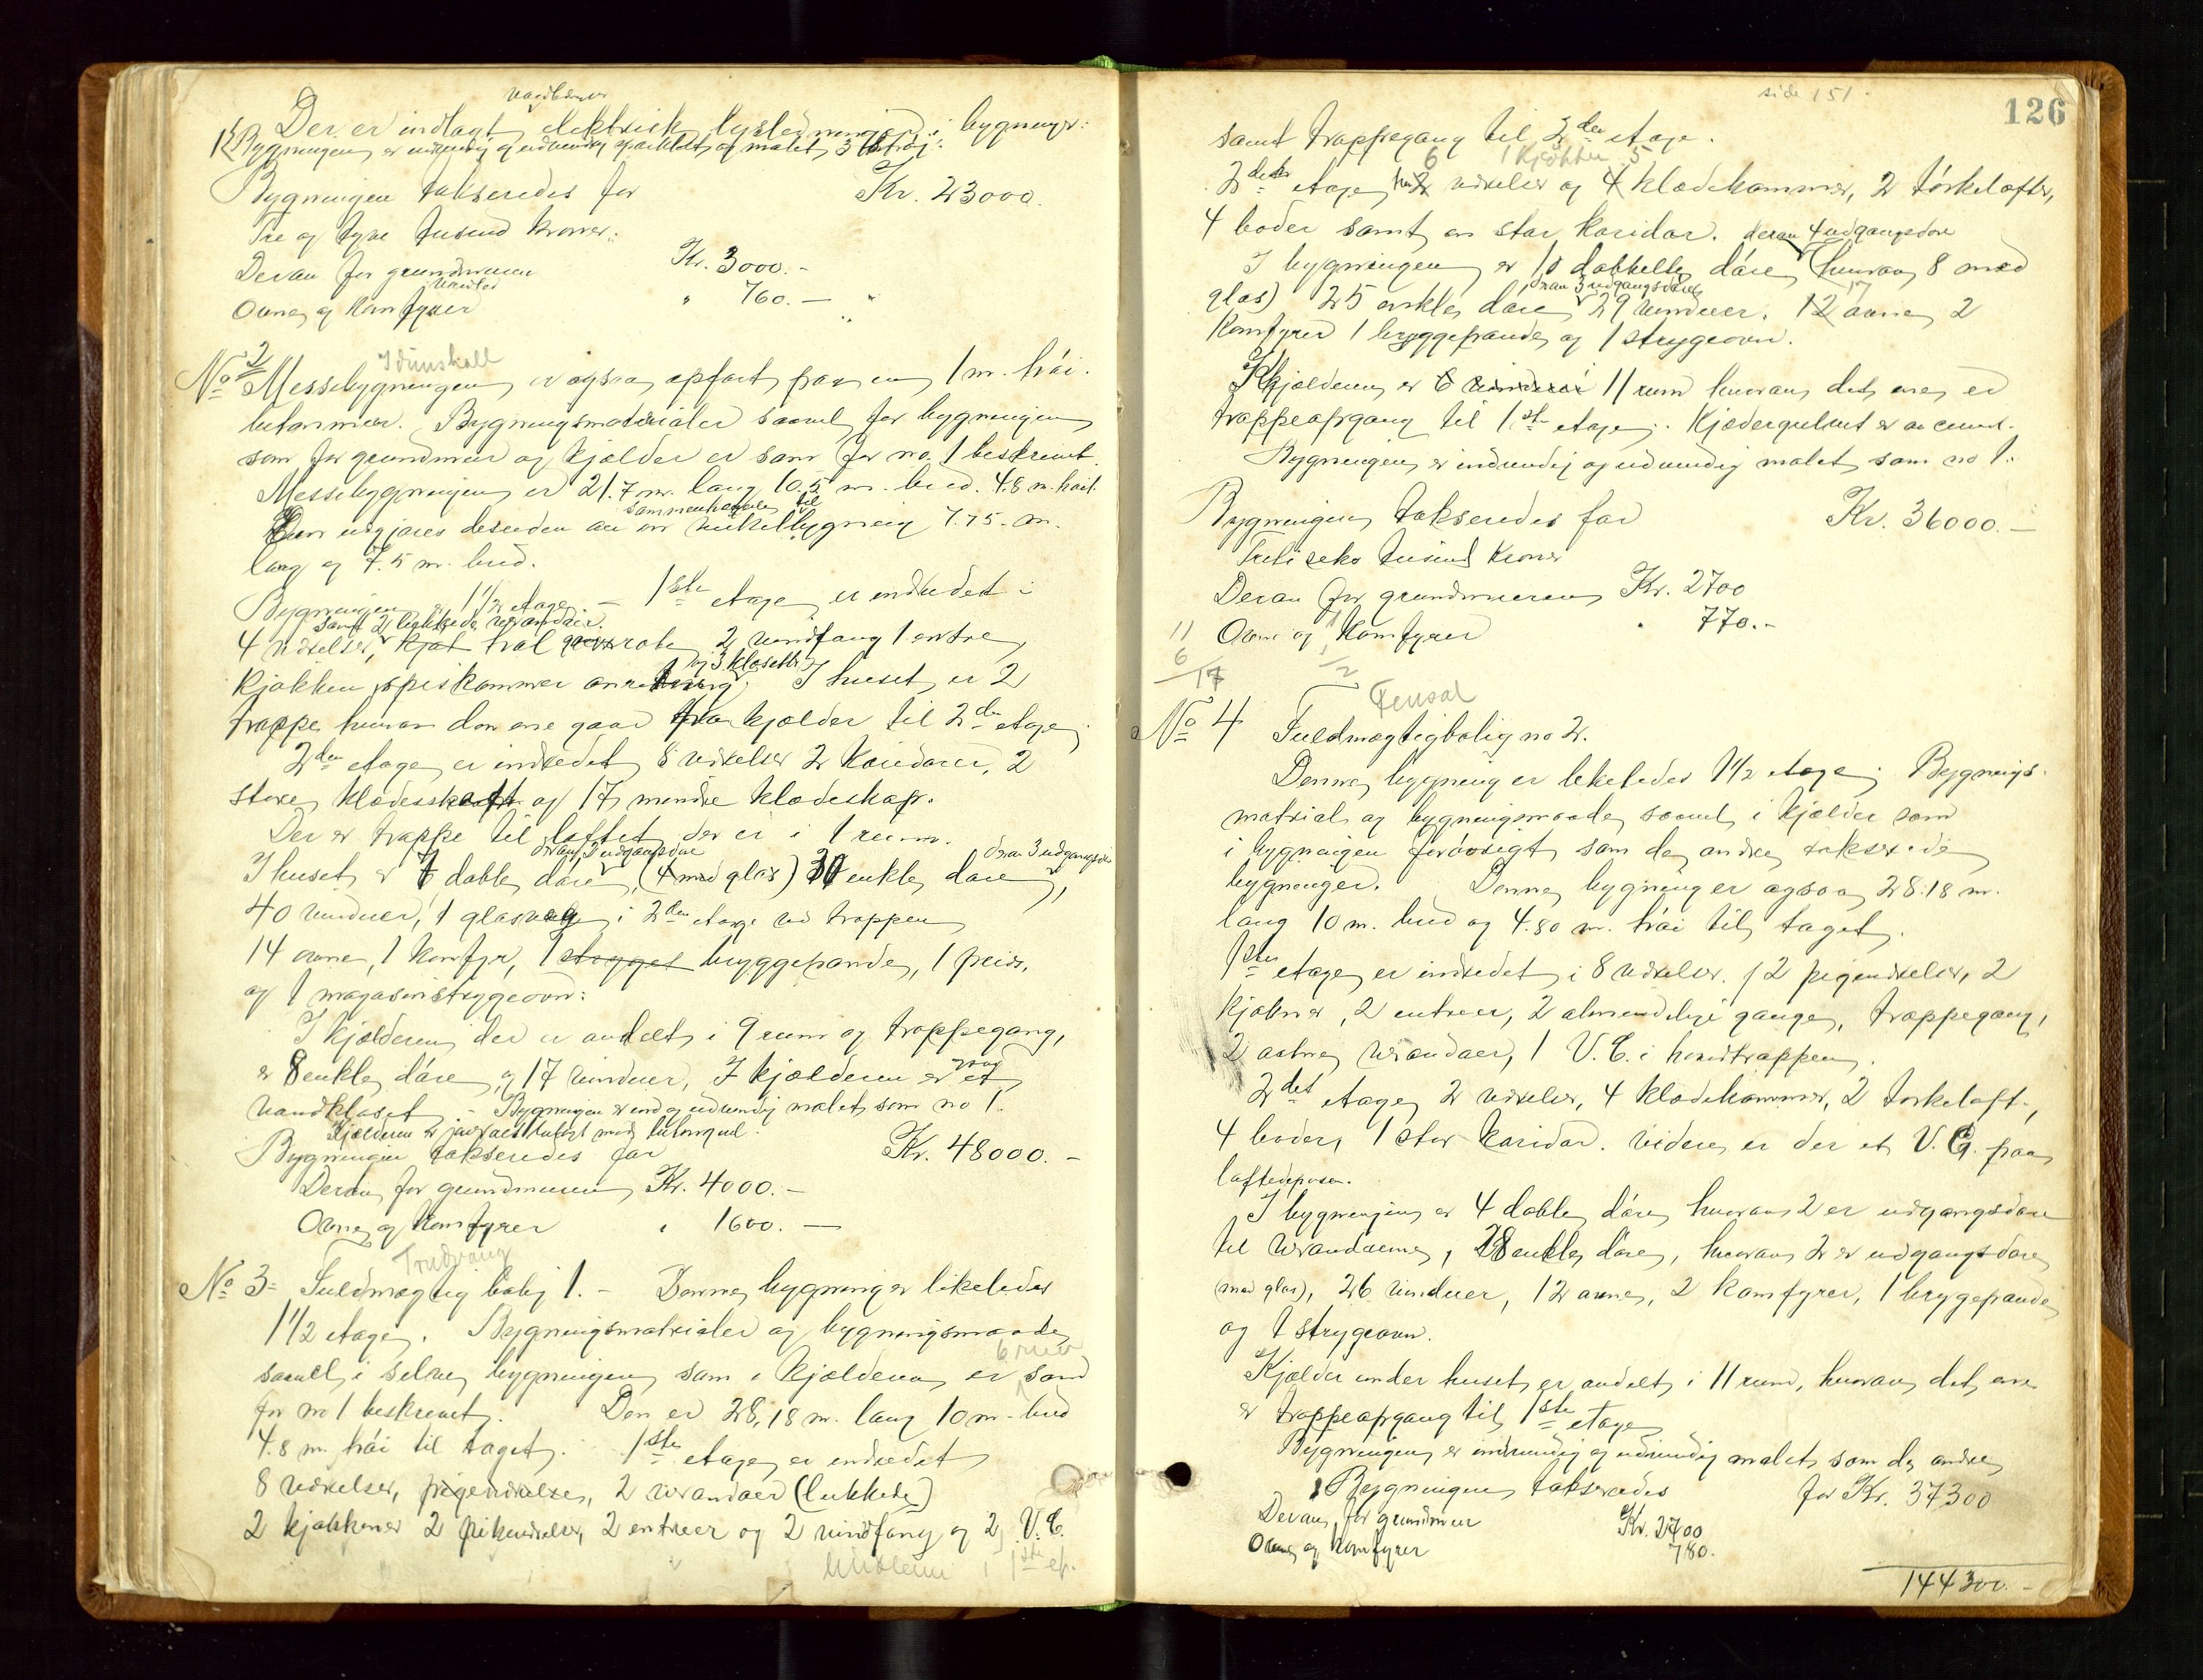 Der er indlagt elektrisk lysledning i bygningen:
Bygningen er indvendig og udvendig malet 3
Bygningen takseredes for Kr. 23000.
Tre og tyve tusend kroner:
Deraf for grundmuren Kr. 3000.-
Ovne og Komfyrer " 760.- "
Idunshall
No 2 Messebygningen er ogsaa opført paa en 1 m. høi.
betonmur. Bygningsmaterialer saavel for bygningen
som for grundmur og kjælder er som for no. 1 beskrevet.
Messebygningen er 21.7 m. lang 10.5 m. bred. 4.8 m. høi.
sammenhængende til
Den udgjøres desuden av en vinkelbygning 7.75 m.
lang og 7.5 m. bred.
Bygningen er 1 1/2 etage. - 1ste etage er indredet i
samt 2 lukkede verandaer.
4 værelser, hal garderobe, 2 vindfang 1 entre,
og 3 klosetter
kjøkken spiskammer anretning. I huset er 2
trappe hvorav den ene gaar fra kjælder til 2den etage.
2den etage er indredet 8 værelser 2 Koridorer, 2
store klædesskap og 17 mindre klædeskap.
Der er trappe til loftet der er i 1 rum.
derav 2 udgangsdøre derav 3 udgangsdøre
I huset er 6 doble døre, (4 med glas) 30 enkle døre,
40 vinduer, 1 glasvæg i 2den etage ved trappen
14 ovne, 1 Komfyr, 1 bryggepande, 1 peis,
og 1 magasinstrygeovn:
I kjælderen der er avdelt i 9 rum og trappegang,
er 8 enkle døre og 17 vinduer, I kjælderen er et
vandkloset. - Bygningen er ind og udvendig malet som no 1.
Kjælderen er belagt med betongul.
Bygningen takseredes for Kr. 48000.-
Derav for grundmuren Kr. 4000.-
Ovne og Komfyrer " 1600.-
Trudvang
No 3 Fuldmægtig bolig 1. - Denne bygning er likeledes
1 1/2 etage. Bygningsmatrialer og bygningsmaade
saavel i selve bygningen som i kjælderen er som
for no 1 beskrevet. Den er 28,18 m. lang 10 m. bred
4.8 m. høi til taget. 1ste etage er indredet
8 værelser, pigeværelser, 2 verandaer (lukkede)
2 kjøkkener 2 pikeværelser, 2 entreer og 2 vindfang og 2 V.C.
i 1ste et.
side 151.
126
samt trappegang til 2den etage.
6 1 Kjøkken 5
2den etage har 2 værelser og 4 klædekammer, 2 tørkelofter,
4 boder samt en stor koridor. derav 4 udgangsdøre
I bygningen er 10 dobbelte døre (hvorav 8 med
derav 3 udgangsdøre 17
glas) 25 enkle døre 29 vinduer. 12 ovne, 2
Komfyrer 1 bryggepande og 1 strygeovn.
I kjælderen er 11 rum hvorav det ene er
trappeopgang til 1ste etage. Kjældergulvet er av cement.
Bygningen er indvendig og udvendig malet som no 1.
Bygningen takseredes for Kr. 36000.-
Treti seks tusend Kroner
Derav for grundmuren Kr. 2700
Ovne og Komfyrer " 770.-
11
6
17
12
Fensal
No 4 Fuldmægtigbolig no 2.
Denne bygning er likeledes 1 1/2 etage. Bygnings-
matrial og bygningsmaade saavel i kjælder som
i bygningen forøvrigt som de andre takserede
bygninger. Denne bygning er ogsaa 28.18 m.
lang 10 m. bred og 4.80 m. høi til taget.
1ste etage er indredet i 8 værelser, 2 pigeværelser, 2
kjøkner, 2 entreer, 2 almindelige gange, trappegang,
2 aabne verandaer, 1 V.C. i hovedtrappen.
2det etage 2 værelser, 4 klædekammer, 2 tørkeloft,
4 boder, 1 stor koridor. Videre er der et V.C. paa
loftet
I bygningen er 4 doble døre hvorav 2 er udgangsdøre
til verandaerne, 28 enkle døre, hvorav 2 er udgangsdøre
(med glas), 26 vinduer, 12 ovne, 2 komfyrer, 1 bryggepande
og 1 strygeovn.
Kjælder under huset er avdelt i 11 rum, hvorav det ene
er trappeopgang til 1ste etage
Bygningen er indvendig og udvendig malet som de andre
Bygningen takseredes for Kr. 37300
Derav for grundmur Kr. 2700
Ovne og komfyrer 780.
144300.-